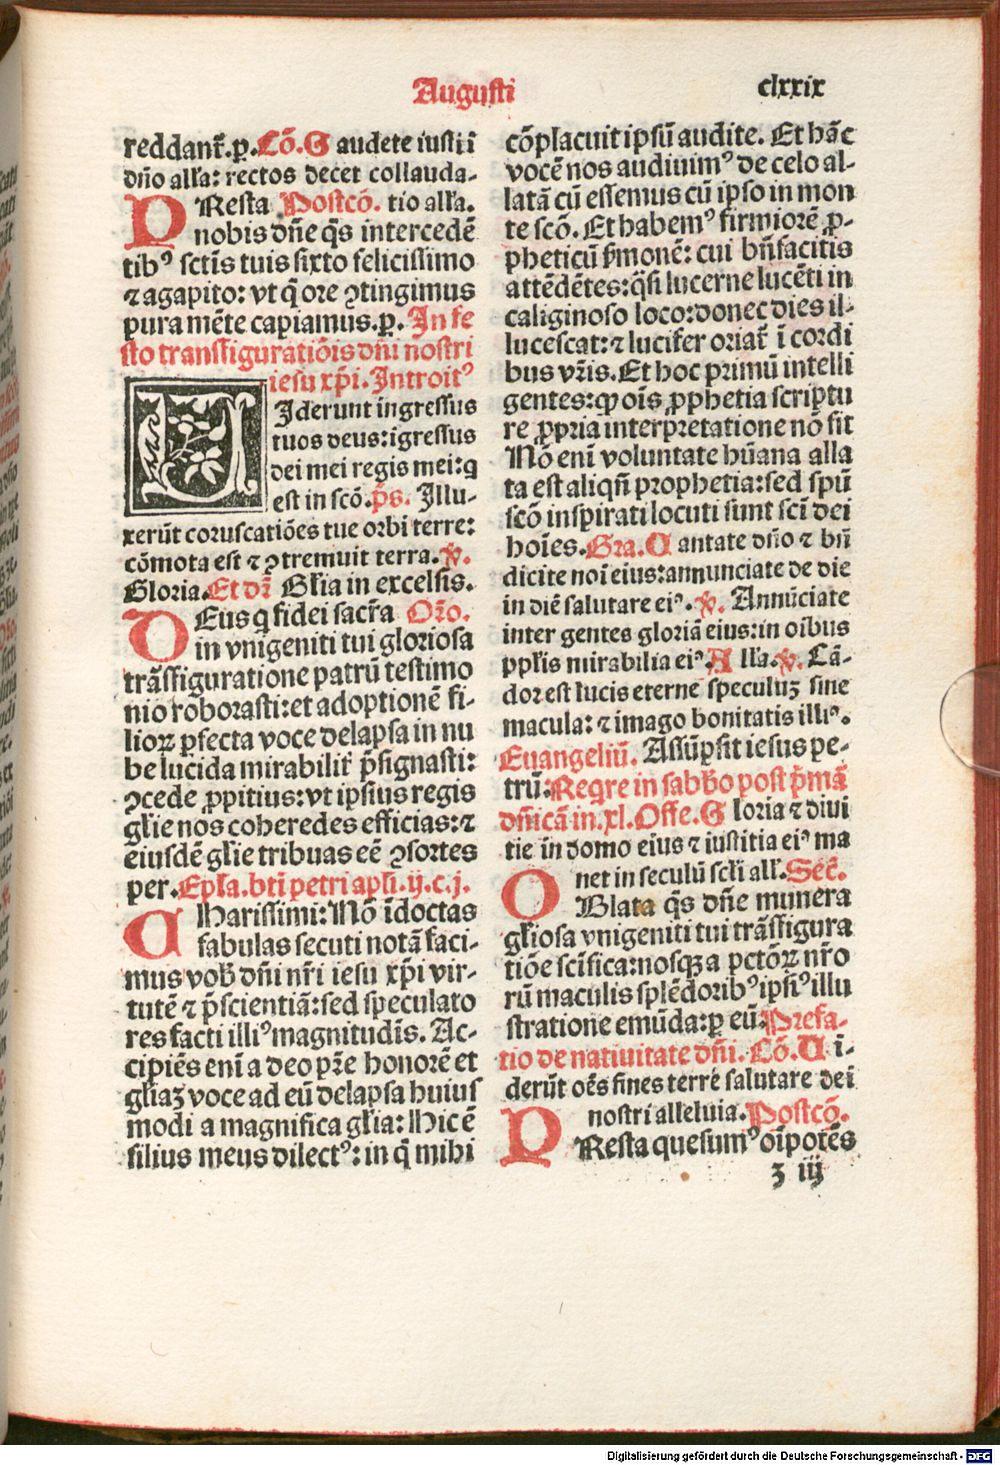 Augusti
clxxix
reddant᷑.p.Cō.G audete iusti ī
dn̄o alľa: rectos decet collauda-
P Resta Postcō. tio alľa.
nobis dn̄e q̄s intercedē
tibꝰ sctīs tuis sixto felicissimo
⁊ agapito: vt q̄ ore ꝯtingimus
pura mēte capiamus.ꝑ. In fe
sto transfiguratiōis dn̄i nostri
iesu xp̄i. Introitꝰ
U Iderunt ingressus
tuos deus: īgressus
dei mei regis mei: q
est in scō. p̄s. Illu-
xerūt coruscatiōes tue orbi terre:
cōmota est ⁊ ꝯtremuit terra. ℣.
Gloria. Et dr̄ Gľia in excelsis.
D Eus q fidei sacr̄a Or̄o.
in vnigeniti tui gloriosa
trāsfiguratione patrū testimo
nio roborasti: et adoptionē fi-
lioꝝ ꝑfecta voce delapsa in nu
be lucida mirabilit᷑ p̄signasti:
ꝯcede ꝓpitius: vt ipsius regis
gľie nos coheredes efficias: ⁊
eiusdē gľie tribuas eē ꝯsortes
per. Epľa. btī petri apľi. ij. c. j.
C Harissimi: Nō īdoctas
fabulas secuti notā faci-
mus vob̄ dn̄i nr̄i iesu xp̄i vir-
tutē ⁊ p̄scientiā: sed speculato
res facti illiꝰ magnitudīs. Ac-
cipiēs enī a deo pr̄e honorē et
gľiaʒ voce ad eū delapsa huius
modi a magnifica gľia: Hic ē
filius meus dilectꝰ: in q̄ mihi
cōplacuit ipsū audite. Et hāc
vocē nos audiuimꝰ de celo al-
latā cū essemus cū ipso in mon
te scō. Et habemꝰ firmiorē ꝓ-
pheticū ẜmonē: cui bn̄facitis
attēdētes: q̄si lucerne lucēti in
caliginoso loco: donec dies il-
lucescat: ⁊ lucifer oriat᷑ ī cordi
bus vr̄is. Et hoc primū intelli
gentes: ꝙ oīs ꝓphetia scriptu
re ꝓpria interpretatione nō fit
Nō enī voluntate hūana alla
ta est aliqn̄ prophetia: sed spū
scō inspirati locuti sunt scī dei
hoīes. Gra. C antate dn̄o ⁊ bn̄
dicite noī eius: annunciate de die
in diē salutare eiꝰ. ℣. Annūciate
inter gentes gloriā eius: in oībus
ppľis mirabilia eiꝰ. A lľa. ℣. Cā-
dor est lucis eterne speculuʒ sine
macula: ⁊ imago bonitatis illiꝰ.
Euangeliū. Assūpsit iesus pe-
trū: Reqre in sabb̄o post p̄mā
dn̄icā in. xl. Offe. G loria ⁊ diui
tie in domo eius ⁊ iustitia eiꝰ ma
O net in seculū scľi alľ. Sec̄.
Blata q̄s dn̄e munera
gľiosa vnigeniti tui trāsfigura
tiōe scīfica: nosqꝫ a pctōꝝ nr̄o
rū maculis splēdoribꝰ ipsiꝰ illu
stratione emūda: ꝑ eū. Prefa-
tio de natiuitate dn̄i. Cō. U i-
derūt oēs fines terre salutare dei
P nostri alleluia. Postcō.
Resta quesumꝰ oīpotēs
ʒ iij
Digitalisierung gefördert durch die Deutsche Forschungsgemeinschaft - DFG